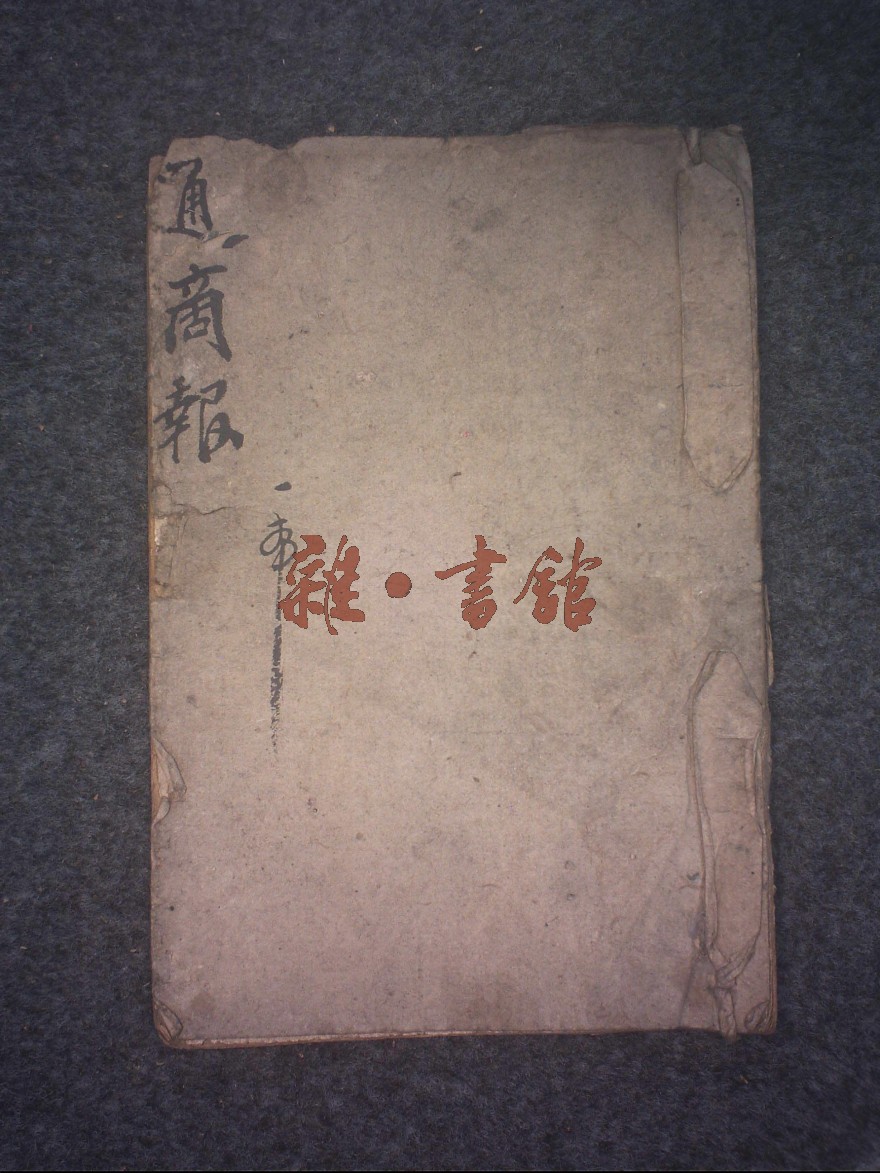 通商報
一本
雜·書館